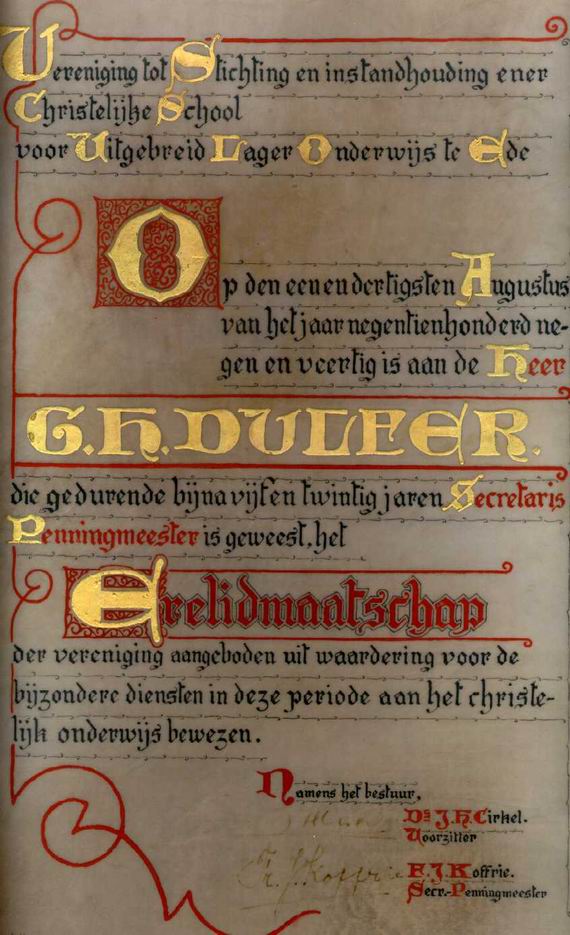 Vereniging tot Stichting en instandhouding ener
Christelijke School
voor Uitgebreid Lager Onderwijs te Ede
Op den eenendertigsten Augustus
van het jaar negentienhonderd ne-
gen en veertig is aan de Heer
G.H. DULFER.
die gedurende bijna vijf en twintig jaren Secretaris
Penningmeester is geweest, het
Erelidmaatschap
der vereniging aangeboden uit waardering voor de
bijzondere diensten in deze periode aan het christe-
lijk onderwijs bewezen.
Namens het bestuur,
Ds J.H. Cirkel.
Voorzitter
Fr. J. Koffrie
F.J. Koffrie.
Secr.-Penningmeester